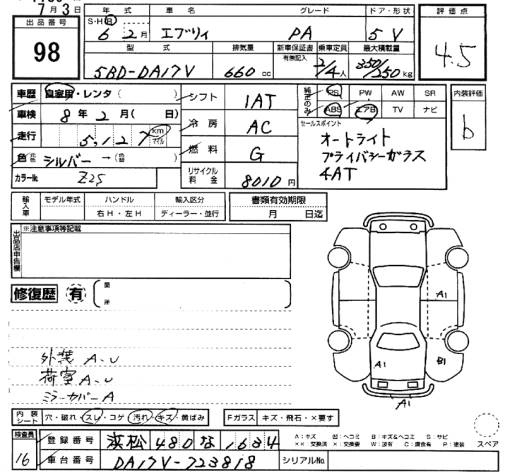 7月3日
出品番号
98
年式 車名 グレード ドア・形状
S・H・R 6年2月 エブリィ PA 5 V
型式 排気量 新車保証書 有無記入 乗車定員 最大積載量
5BD-DA17V 660cc 2/4人 350/250kg
評価点
4.5
車歴 自家用・レンタ( )
シフト 1AT
車検 8年2月( 日)
冷房 AC
走行 5,127 km マイル
燃料 G
色 元色 シルバー→ 色替
カラーNo. Z2S
リサイクル料金 8010円
純正のみ PS PW AW SR
ABS エアB TV ナビ
セールスポイント
オートライト
プライバシーガラス
4AT
内装評価
b
輸入車 モデル年式 ハンドル 輸入区分
右H・左H ディーラー・並行
書類有効期限
月 日迄
出品店申告欄
※注意事項等記載
修復歴 有 箇所
外装 A.U
荷室 A.U
ミラーカバーA
A1
A1
B1
A1
内装シート 穴・破れ・スレ・コゲ 汚れ・キズ・黄ばみ
Fガラス キズ・飛石・×要す
スペア
検査員
16
登録番号 浜松 480 な 1634
車台番号 DA17V-723818
シリアルNo.